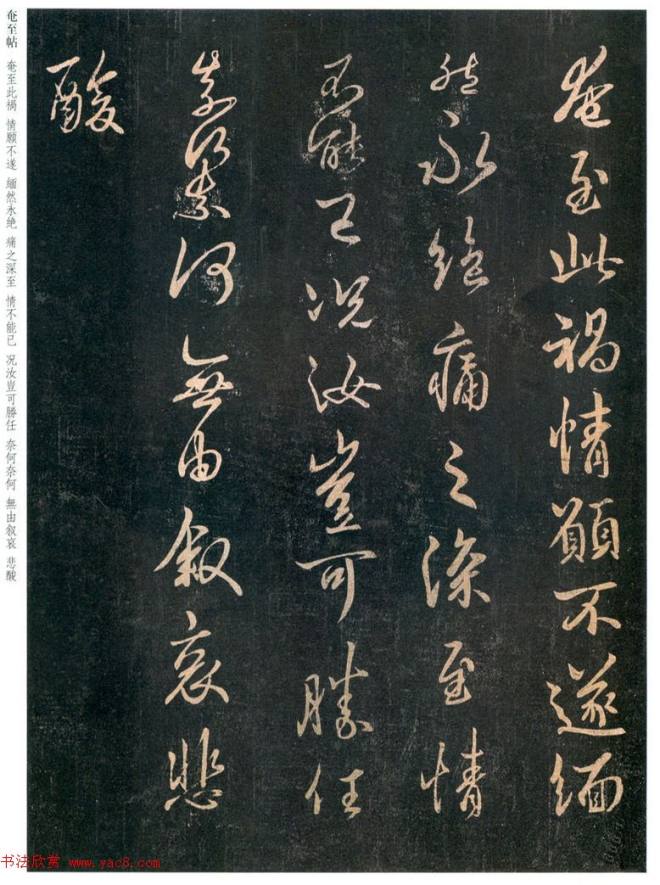 奄至此禍情願不遂緬
然永絶痛之深至情
不能已況汝豈可勝任
奈何奈何無由叙哀悲
酸
奄至帖 奄至此禍 情願不遂 緬然永絶 痛之深至 情不能已 況汝豈可勝任 奈何奈何 無由叙哀 悲酸
书法欣赏 www.yac8.com